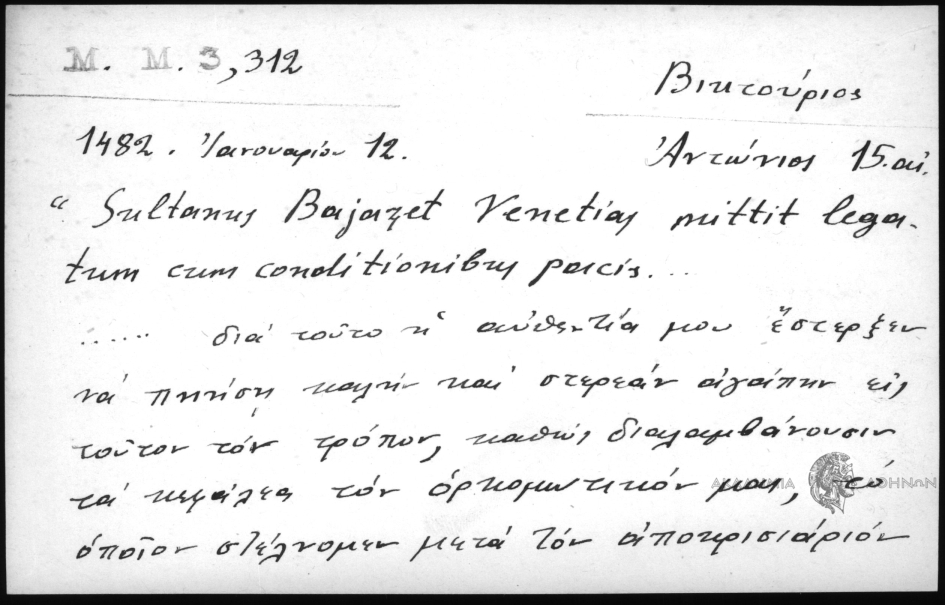 M. M. 3, 312
Βικτούριος
1482. Ἰανουαρίου 12.
Ἀντώνιος 15. αἰ.
“ Sultanus Bajazet Venetias mittit lega-
tum cum conditionibus pacis...
...... διά τοῦτο ἡ αὐθεντία μου ἔστερξεν
νά ποιήσῃ καλήν καί στερεάν ἀγάπην εἰς
τοῦτον τόν τρόπον, καθώς διαλαμβάνουσιν
τά κεφάλεα τόν ὁρκομωτικόν μας, τό
ὁποῖον στέλνομεν μετά τόν ἀποκρισιάριόν
ΑΚΑΔΗΜΙΑ ΑΘΗΝΩΝ